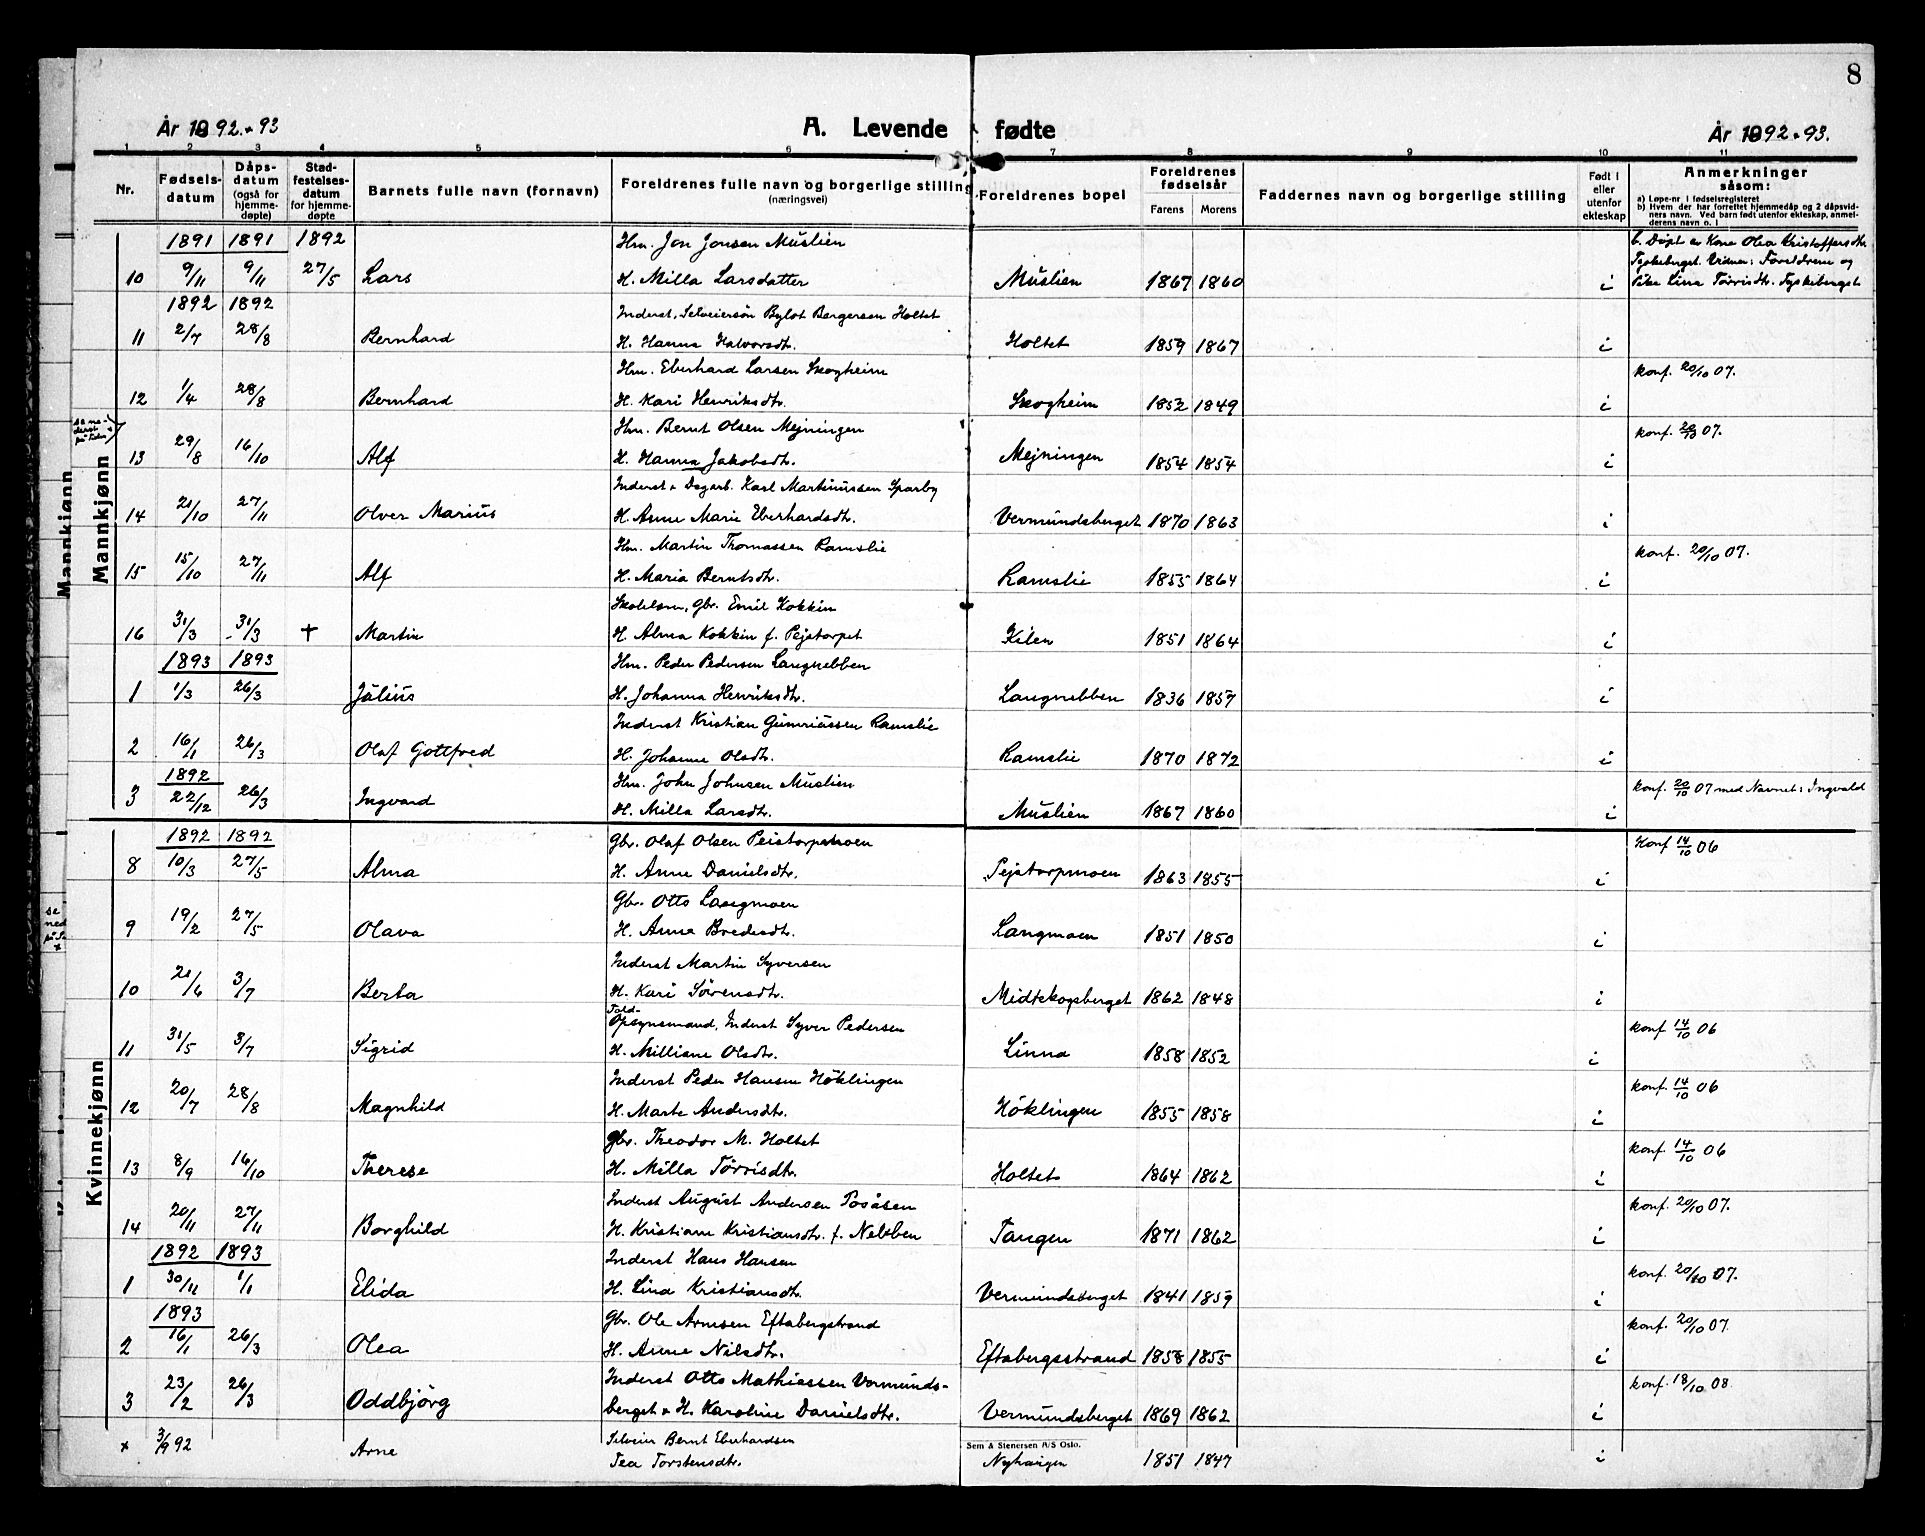 8
År 1892 + 93
A. Levende fødte
År 1892 + 93.
1 2 3 4 5 6 7 8 9 10 11
Nr.
Fødsels-
datum
Dåps-
datum
(også for
hjemme-
døpte)
Stad-
festelses-
datum
for hjemme-
døpte
Barnets fulle navn (fornavn)
Foreldrenes fulle navn og borgerlige stilling
(næringsvei)
Foreldrenes bopel
Foreldrenes
fødselsår
Farens Morens
Faddernes navn og borgerlige stilling
Født i
eller
utenfor
ekteskap
Anmerkninger
såsom:
a) Løpe-nr i fødselsregisteret
b) Hvem der har forrettet hjemmedåp og 2 dåpsvid-
ners navn. Ved barn født utenfor ekteskap, anmel-
derens navn o. l
Mannkjønn
Mannkjønn
1891 1891 1892 Hm. Jon Jonsen Muslien b. Døpt av Kone Olea Kristoffersdtr.
Tyskeberget. Vidner: Foreldrene og
10 9/11 9/11 27/5 Lars H. Milla Larsdatter Muslien 1867 1860 i Pike Lina Tørrisdtr. Tyskeberget
1892 1892 Inderst, Selveiersön Bylot Borgersen Holtet
11 2/7 28/8 Bernhard H. Hanna Halvorsdtr. Holtet 1859 1867 i
Hm. Eberhard Larsen Skogheim konf. 20/10 07.
12 1/4 28/8 Bernhard H. Kari Henriksdtr. Skogheim 1852 1849 i
se ne-
derst
på siden
Hm. Bernt Olsen Mejningen konf. 20/10 07.
13 29/8 16/10 Alf H. Hanna Jakobsdtr. Mejningen 1854 1854 i
Inderst + Dagarb. Karl Martinussen Sparby
14 21/10 27/11 Olver Marius H. Anne Marie Eberhardsdtr. Vermundsberget 1870 1863 i
Hm. Martin Thomassen Ramslie konf. 20/10 07.
15 15/10 27/11 Alf H. Maria Berntsdtr. Ramslie 1855 1864 i
Gbr. Emil Kokkin
16 31/3 31/3 + Martin H. Alma Kokkin f. Pejstorpet Kilen 1851 1864 i
1893 1893 Hm. Peder Pedersen Langnebben
1 1/3 26/3 Julius H. Johanna Henriksdtr. Langnebben 1836 1857 i
Inderst Kristian Gunriussen Ramslie
2 16/1 26/3 Olaf Gottfred H. Johanne Olsdtr. Ramslie 1870 1872 i
1892 Hm. John Johnsen Muslien konf. 20/10 07 med Navnet: Ingvald
3 22/12 26/3 Ingvard H. Milla Larsdtr. Muslien 1867 1860 i
Kvinnekjønn
1892 1892 Gbr. Olaf Olsen Peistorpmoen Konf 14/10 06
8 10/3 27/5 Alma H. Anne Danielsdtr. Pejstorpmoen 1863 1855 i
se
ned
på s.
+
Gbr. Otto Langmoen
9 19/2 27/5 Olava H. Anna Bredesdtr. Langmoen 1851 1850 i
Inderst Martin Syversen
10 21/6 3/7 Berta H. Kari Sörensdtr. Midtskogsberget 1862 1848 i
Told-
Opsynsmand, Inderst Syver Pedersen konf 14/10 06
11 31/5 3/7 Sigrid H. Milliane Olsdtr. Linna 1858 1852 i
Inderst Peder Hansen Höklingen konf 14/10 06
12 20/7 28/8 Magnhild H. Marte Andersdtr. Höklingen 1855 1858 i
Gbr. Theodor M. Holtet konf. 14/10 06
13 8/9 16/10 Therese H. Milla Törrisdtr. Holtet 1864 1862 i
Inderst August Andersen Posåsen konf. 20/10 07.
14 20/11 27/11 Borghild H. Kristiane Kristiansdtr. f. Nebben Tangen 1871 1862 i
1892 1893 Inderst Hans Hansen konf. 20/10 07.
1 30/11 1/1 Elida H. Lina Kristiansdtr. Vermundsberget 1841 1859 i
1893 Gbr. Ole Arnesen Eftabergstrand konf. 20/10 07.
2 16/1 26/3 Olea H. Anne Nilsdtr. Eftabergsstrand 1858 1855 i
Inderst Otto Mathiassen Vermunds- konf. 18/10 08.
3 23/2 26/3 Oddbjörg berget + H. Karoline Danielsdtr. Vermundsberget 1869 1862 i
Selveier Bernt Eberhardsen
Sem & Stenersen A/S Oslo.
+ 3/9 92 Arne Tea Torstensdtr. Nyhaugen 1851 1847 i